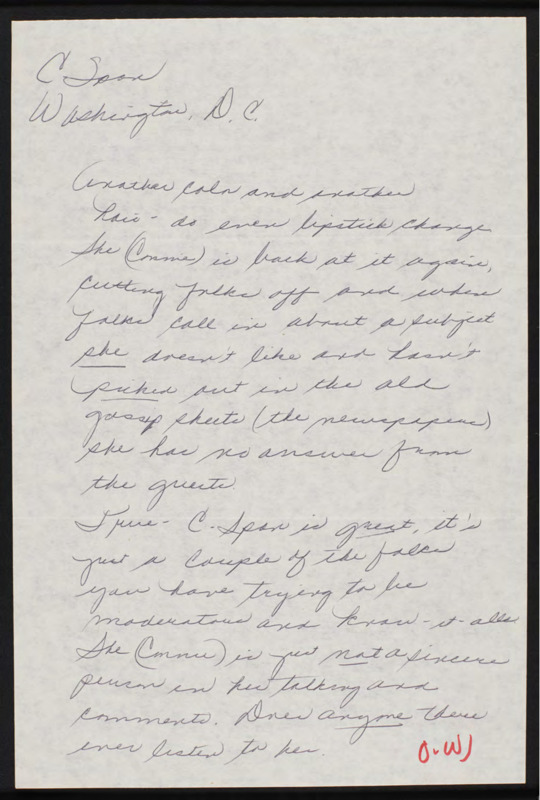 C-Span
Washington, D.C.
Another and another
hair-do even lipstick change
She (Connie) is back at it again,
cutting folks off and when
folks call in about a subject
she doesn't like and hasn't
picked out in the old
gossip sheets (the newspapers)
she has no answer from
the guests.
True - C-Span is great, it's
just a couple of the folks
you have trying to be
moderators and know-it-alls
She (Connie) is just not a sincere
person in her talking and
comments. Does anyone there
ever listen to her.